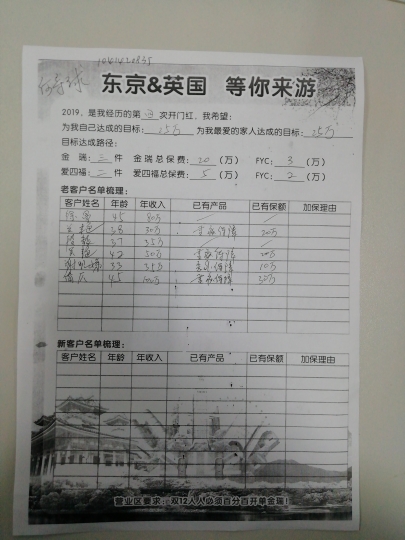 东京&英国 等你来游
2019，是我经历的第 次开门红，我希望：
为我自己达成的目标：25万 为我最爱的家人达成的目标：25万
目标达成路径：
金 瑞：三 件 金瑞总保费：20（万） FYC：3（万）
爱四福：二 件 爱四福总保费：5（万） FYC：2（万）
老客户名单梳理：
客户姓名 年龄 年收入 已有产品 已有保额 加保理由
45 80万 / /
38 30万 20万
37 35万 / /
42 30万 20万
33 35万 10万
45 100万 30万
新客户名单梳理：
客户姓名 年龄 年收入 已有产品 已有保额 加保理由
营业区要求：双12人人必须百分百开单金瑞！